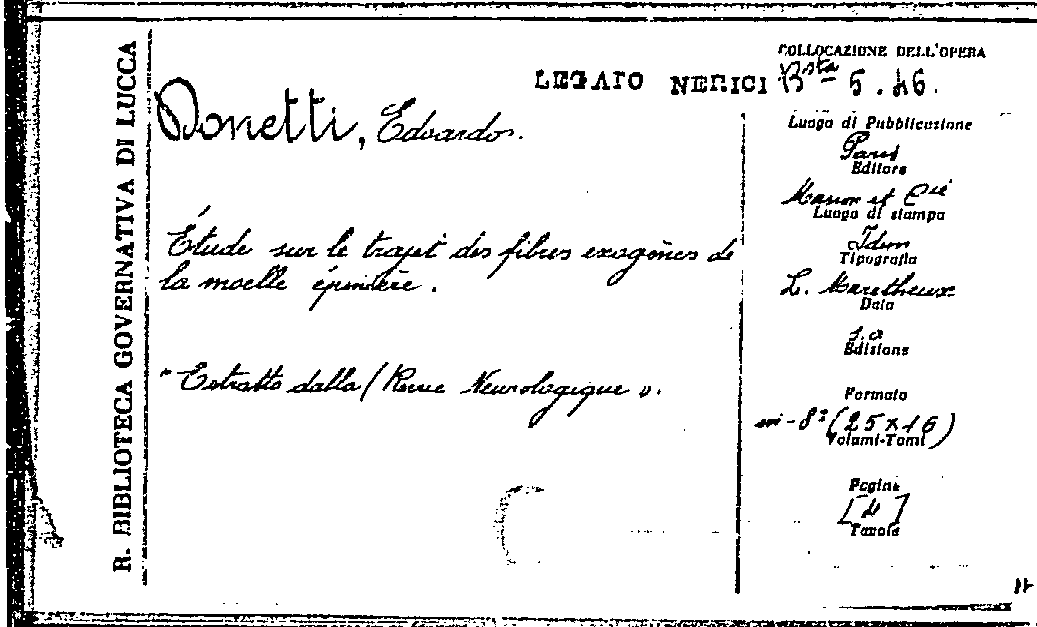 R. BIBLIOTECA GOVERNATIVA DI LUCCA
COLLOCAZIONE DELL'OPERA
LEGATO NERICI Bsta 5.46.
Donetti, Edoardo.
Étude sur le trajet des fibres exogènes de
la moelle épinière.
" Estratto dalla ( Revue Neurologique ».
Luogo di Pubblicazione
Paris
Editore
Masson et Cie
Luogo di stampa
Idem
Tipografia
L. Maretheux
Data
s.a
Edizione
Formato
in-8° (25×16)
Volumi-Tomi
Pagine
[4]
Tavole